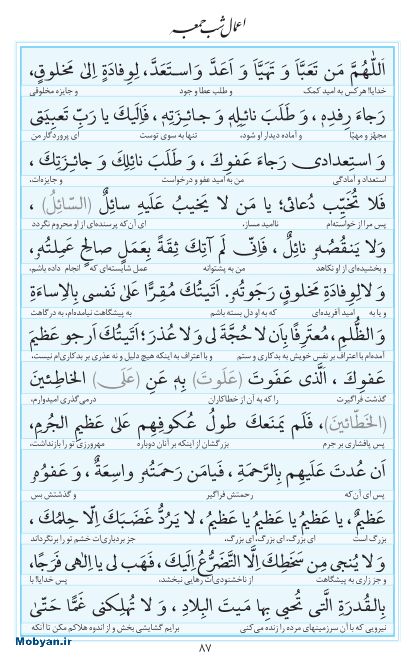 اعمال شب جمعه
اَللّٰهُمَّ مَن تَعَبَّاَ وَ تَهَيَّاَ وَ اَعَدَّ وَاستَعَدَّ، لِوِفادَةٍ اِلىٰ مَخلوقٍ،
خدایا! هرکس به امید کمک و طلب عطا و جود و جایزه مخلوقی
رَجاءَ رِفدِهٖ، وَ طَلَبَ نائِلِهٖ وَ جائِزَتِهٖ، فَاِلَيكَ يا رَبِّ تَعبِيَتى
مجهّز و مهیّا و آماده دیدار او شود، تنها به سوی توست ای پروردگار من
وَ استِعدادى رَجاءَ عَفوِكَ، وَ طَلَبَ نائِلِكَ وَ جائِزَتِكَ،
استعداد و آمادگی من به امید عفو و درخواست و جایزه‌ات.
فَلا تُخَيِّب دُعائى؛ يا مَن لا يَخيبُ عَلَيهِ سائِلٌ (السّائِلُ)،
پس مرا از خواسته‌ام ناامید مساز، ای آن‌که پرسنده‌ای از او محروم نگردد
وَلا يَنقُصُهٗ نائِلٌ، فَاِنّى لَم آتِكَ ثِقَةً بِعَمَلٍ صالِحٍ عَمِلتُهٗ،
و بخشیده‌ای از او نکاهد من به پشتوانه عمل شایسته‌ای که انجام داده باشم،
وَ لالِوِفادَةِ مَخلوقٍ رَجَوتُهٗ. اَتَيتُكَ مُقِرًّا عَلىٰ نَفسى بِالاِساءَةِ
و یا به امید آفریده‌ای که به او دل بسته باشم به پیشگاهت نیامده‌ام، به درگاهت
وَالظُّلمِ، مُعتَرِفًا بِاَن لا حُجَّةَ لى وَلا عُذرَ؛ اَتَيتُكَ اَرجو عَظيمَ
آمده‌ام با اعتراف بر نفس خویش به بدکاری و ستم و با اعتراف به اینکه هیچ دلیل و نه عذری بر بدکاری‌ام نیست،
عَفوِكَ، الَّذى عَفَوتَ (عَلَوتَ) بِهٖ عَنِ (عَلَى) الخاطِئينَ
گذشت فراگیرت را که به آن از خطاکاران درمی‌گذری امیدوارم،
(الخَطّائينَ)، فَلَم يَمنَعكَ طولُ عُكوفِهِم عَلىٰ عَظيمِ الجُرمِ،
پس پافشاری بر جرم بزرگشان از اینکه بر آنان دوباره مهرورزی تو را بازنداشت،
اَن عُدتَ عَلَيهِم بِالرَّحمَةِ، فَيامَن رَحمَتُهٗ واسِعَةٌ، وَ عَفوُهٗ
پس ای آن‌که رحمتش فراگیر و گذشتش بس
عَظيمٌ، يا عَظيمُ يا عَظيمُ يا عَظيمُ، لا يَرُدُّ غَضَبَكَ اِلّا حِلمُكَ،
بزرگ است ای بزرگ، ای بزرگ، ای بزرگ، جز بردباری‌ات خشم تو را برنگرداند
وَ لا يُنجى مِن سَخَطِكَ اِلَّا التَّضَرُّعُ اِلَيكَ، فَهَب لى يا اِلٰهى فَرَجًا،
و جز زاری به پیشگاهت از ناخشنودی‌ات رهایی نبخشد، پس خدایا! با
بِالقُدرَةِ الَّتى تُحيى بِها مَيتَ البِلادِ، وَ لا تُهلِكنى غَمًّا حَتّىٰ
نیرویی که با آن سرزمینهای مرده را زنده می‌کنی برایم گشایشی بخش و از اندوه هلاکم مکن تا آنکه
٨٧
Mobyan.ir